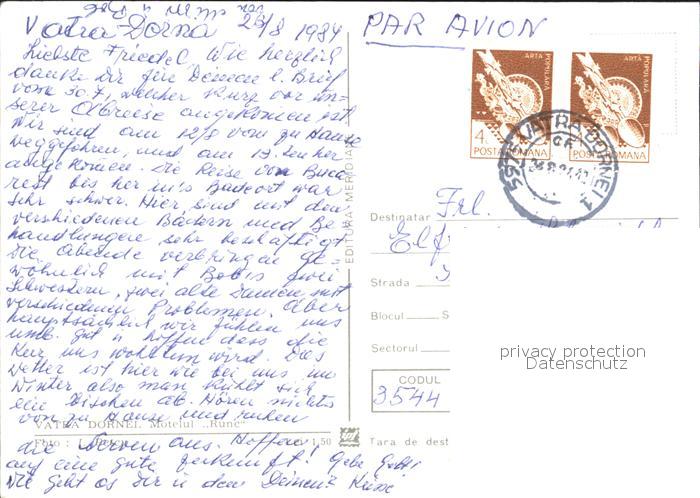 Vatra Dorna 26/8 1984
PAR AVION
Liebste Friedel, Wie herzlich
danke Dir für Deinen l. Brief
vom 30.7, welcher kurz vor un-
serer Abreise angekommen ist.
Wir sind am 12/8 von zu Hause
weggefahren, und am 13. hier
angekommen. Die Reise von Buca
rest bis her in's Badeort war
sehr schwer. Hier sind mit den
verschiedenen Bädern und Be
handlungen sehr beschäftigt
Die Abende verbringen ge-
wöhnlich mit zwei
Schwestern, zwei alte Damen mit
verschiedenen Problemen. Aber
hauptsächlich wir fühlen uns
gut u hoffen dass die
Kur uns wohltun wird. Das
Wetter ist hier wie bei uns im
Winter also man kühlt sich
ein bischen ab. Hören nichts
von zu Hause und ruhen
die Nerven aus. Hoffen
auf eine gute Gebe Gott!
Wie geht es Dir u den Deinen? Küsse
VATRA DORNEI. Motelul „Runc"
Foto :
1,50
EDITURA MERIDIANE
ARTĂ POPULARĂ
4 L
POSTA ROMANA
ARTĂ POPULARĂ
POSTA ROMANA
5975 VATRA DORNEI 1
Destinatar Frl.
Strada
Blocul S
Sectorul
CODUL
3544
Tara de dest
privacy protection
Datenschutz